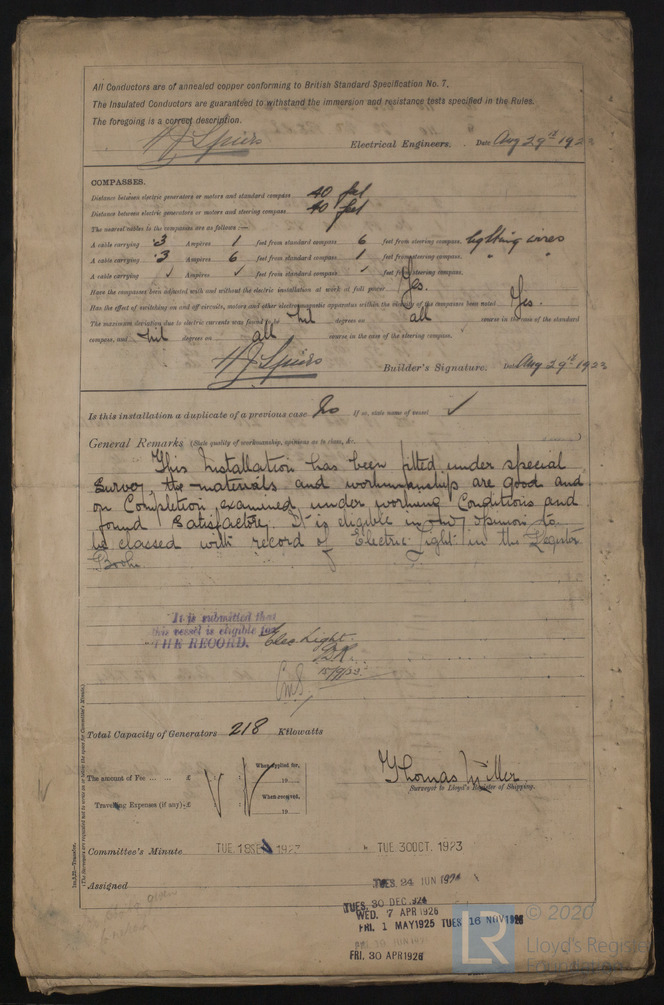 All Conductors are of annealed copper conforming to British Standard Specification No. 7.
The Insulated Conductors are guaranteed to withstand the immersion and resistance tests specified in the Rules.
The foregoing is a correct description.
H J Spiers Electrical Engineers. Date Aug 29th 1923
COMPASSES.
Distance between electric generators or motors and standard compass 40 feet
Distance between electric generators or motors and steering compass 40 feet
The nearest cables to the compasses are as follows:—
A cable carrying .3 Ampères 1 feet from standard compass 6 feet from steering compass. lighting wires
A cable carrying .3 Ampères 6 feet from standard compass 1 feet from steering compass. " "
A cable carrying ✓ Ampères ✓ feet from standard compass ✓ feet from steering compass.
Have the compasses been adjusted with and without the electric installation at work at full power Yes.
Has the effect of switching on and off circuits, motors and other electromagnetic apparatus within the vicinity of the compasses been noted Yes.
The maximum deviation due to electric currents was found to be nil degrees on all course in the case of the standard
compass, and nil degrees on all course in the case of the steering compass.
H J Spiers Builder's Signature. Date Aug 29th 1923
Is this installation a duplicate of a previous case No If so, state name of vessel ✓
General Remarks (State quality of workmanship, opinions as to class, &c.
This Installation has been fitted under special
Survey, the materials and workmanship are good and
on Completion examined under working Conditions and
found Satisfactory. It is eligible in my opinion to
be classed with record of Electric Light in the Register
Book.
It is submitted that
this vessel is eligible for
THE RECORD. Elec Light.
Total Capacity of Generators 218 Kilowatts
The amount of Fee ... ... £ : : When applied for,
19
Travelling Expenses (if any) £ : : When received,
19
Thomas Miller
Surveyor to Lloyd's Register of Shipping.
Committee's Minute TUE. 18 SEP 1923 TUE. 30 OCT. 1923
Assigned
TUES. 24 JUN 1924
TUES. 30 DEC 1924
WED. 7 APR 1926
FRI. 1 MAY 1925 TUES 16 NOV 1926
FRI. 30 APR 1926
© 2020
LR
Lloyd's Register